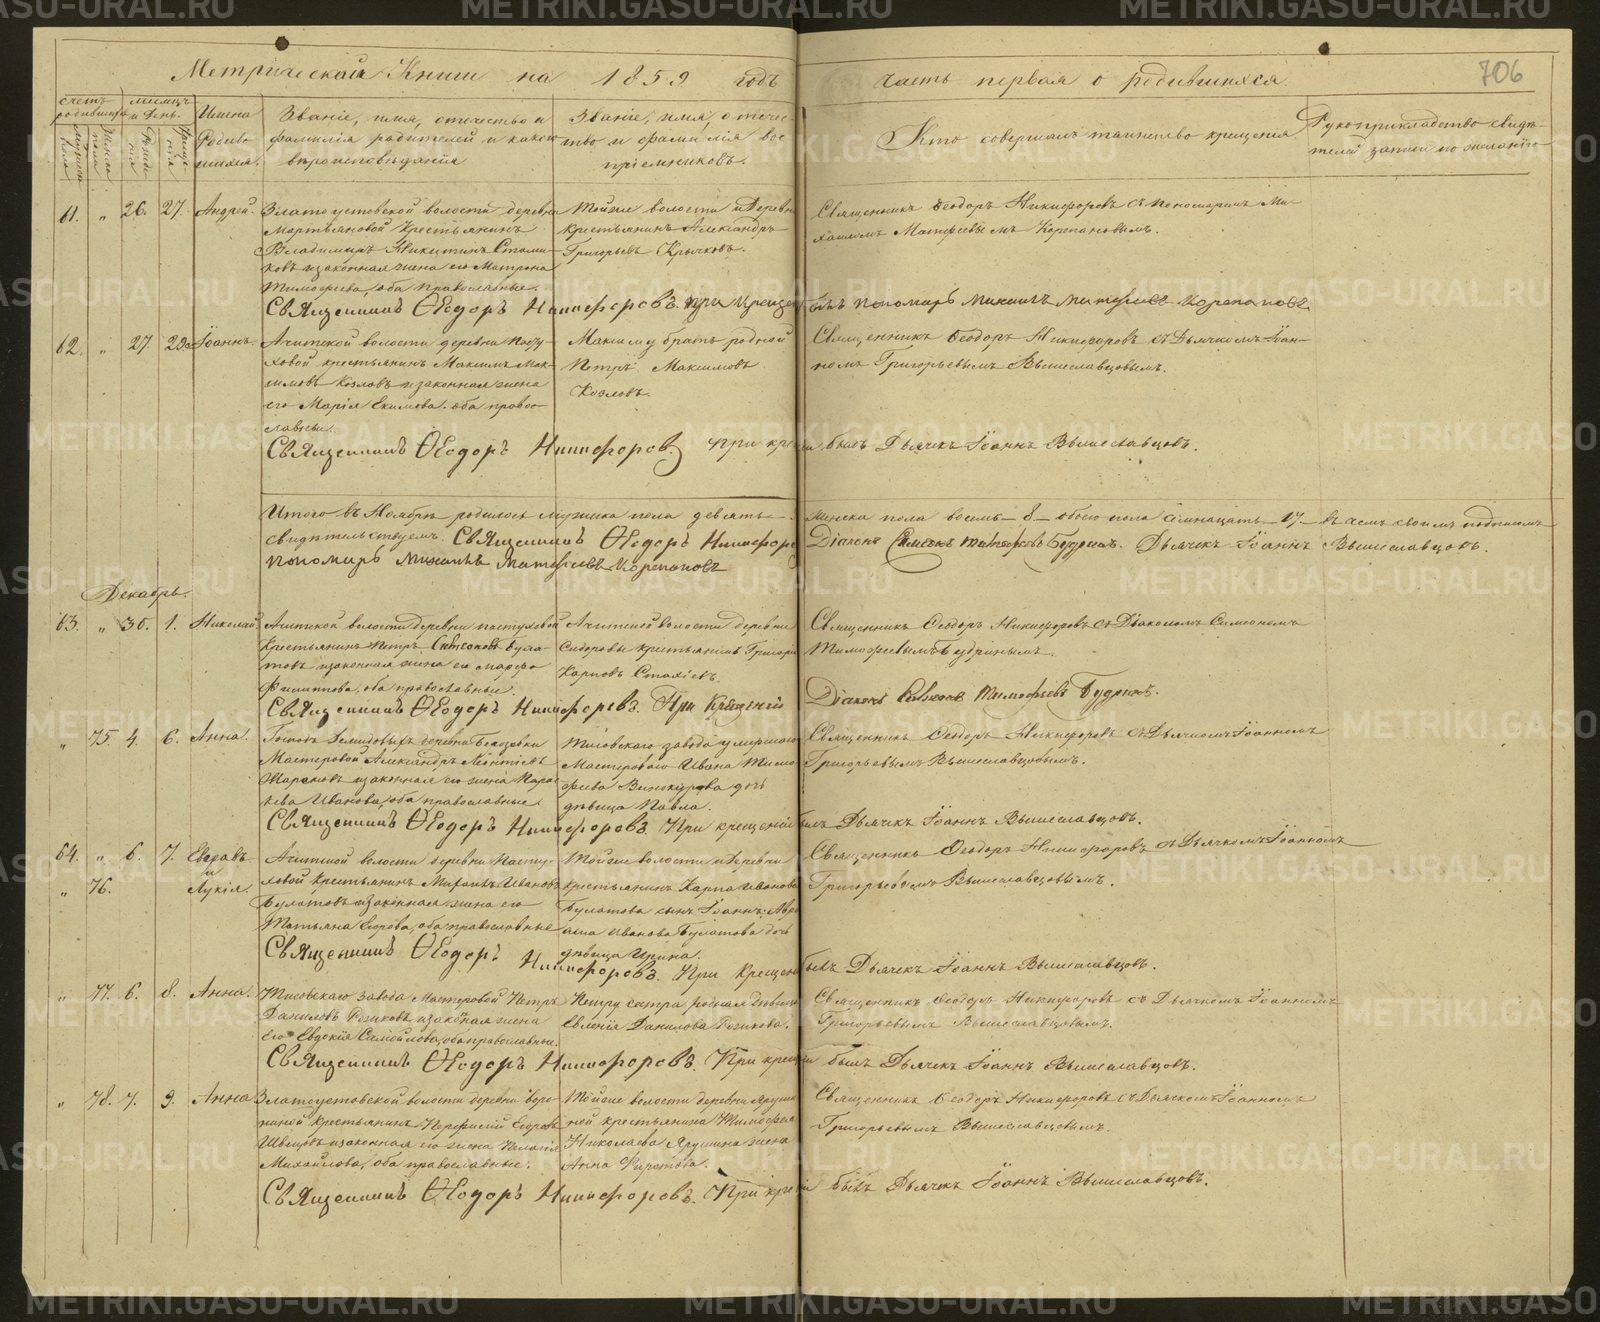 Метрической Книги на 1859 годъ часть первая о родившихся
706
счетъ родившихся
мѣсяцъ и день.
Имена Родившихся.
Званіе, имя, отечество и фамилія родителей и какого вѣроисповѣданія
Званіе, имя, отечество и фамилія воспріемниковъ.
Кто совершалъ таинство крещенія
Рукоприкладство свидѣтелей записи по желанію
61. " 26. 27. Андрей.
Златоустовской волости деревни
Мартьяновой Крестьянинъ
Владимиръ Никитинъ
и законная жена его Матрона
Тимофеева, оба православные.
Тойже волости и деревни
крестьянинъ Александръ
Григорьевъ Крючковъ.
Священникъ Ѳеодоръ Никифоровъ съ пономаремъ Ми-
хаиломъ Матфеевымъ Корепановымъ.
Священникъ Ѳеодоръ Никифоровъ. При крещеніи былъ пономарь Михаилъ Матфеевъ Корепановъ
62. " 27. 29. Іоаннъ.
Ачитской волости деревни Пасту-
ховой крестьянинъ Максимъ Мак-
симовъ Козловъ и законная жена
его Марія Екимова. оба право-
славные.
Максиму братъ родной
Петръ Максимовъ
Козловъ.
Священникъ Ѳеодоръ Никифоровъ съ Дьячкомъ Іоан-
номъ Григорьевымъ Вышеславцовымъ.
Священникъ Ѳеодоръ Никифоровъ. При крещеніи былъ Дьячекъ Іоаннъ Вышеславцовъ.
Итого въ Ноябрѣ родилось мужска пола девять женска пола восемь - 8 - обоего пола семнадцать - 17 - въ чемъ своимъ подписомъ
свидетельствуемъ Священникъ Ѳеодоръ Никифоровъ Діаконъ Симеонъ Тимофеевъ Будринъ. Дьячекъ Іоаннъ Вышеславцовъ.
пономарь Михаилъ Матфеевъ Корепановъ
Декабрь.
63. " 30. 1. Николай
Ачитской волости деревни пастуховой
Крестьянинъ Петръ Була-
товъ и законная жена его Марфа
Филиппова, оба православные.
Ачитской волости деревни
Сидоровы крестьянинъ Григорій
Карповъ Стахіевъ.
Священникъ Ѳеодоръ Никифоровъ съ Діакономъ Симеономъ
Тимофеевымъ Будринымъ.
Священникъ Ѳеодоръ Никифоровъ. При Крещеніи Діаконъ Симеонъ Тимофеевъ Будринъ.
" 75. 4. 6. Анна.
Господъ Демидовыхъ деревни
Мастеровой Александръ Леонтіевъ
и законная его жена Парас-
кева Иванова, оба православные.
Тисовскаго завода умершаго
Мастероваго Ивана Тимо-
феева Винокурова дочь
дѣвица Павла.
Священникъ Ѳеодоръ Никифоровъ съ Дьячкомъ Іоанномъ
Григорьевымъ Вышеславцовымъ.
Священникъ Ѳеодоръ Никифоровъ. При крещеніи былъ Дьячекъ Іоаннъ Вышеславцовъ.
64. " 6. 7.
и
" 76. Лукія.
Ачитской волости деревни Пасту-
ховой Крестьянинъ Ивановъ
Булатовъ и законная жена его
Татьяна Егорова, оба православные
Тойже волости и деревни
крестьянина Карпа Иванова
Булатова сынъ Іоаннъ,
Иванова Булатова дочь
дѣвица Ирина.
Священникъ Ѳеодоръ Никифоровъ съ Дьячкомъ Іоанномъ
Григорьевымъ Вышеславцовымъ.
Священникъ Ѳеодоръ Никифоровъ. При Крещеніи былъ Дьячекъ Іоаннъ Вышеславцовъ.
" 77. 6. 8. Анна.
Тисовскаго завода Мастеровой Петръ
Даниловъ и законная жена
его Евдокія Самойлова, оба православные.
Петру сестра родная дѣвица
Евгенія Данилова
Священникъ Ѳеодоръ Никифоровъ съ Дьячкомъ Іоанномъ
Григорьевымъ Вышеславцовымъ.
Священникъ Ѳеодоръ Никифоровъ. При крещеніи былъ Дьячекъ Іоаннъ Вышеславцовъ.
" 78. 7. 9. Анна
Златоустовской волости деревни
крестьянинъ Егоровъ
Швецовъ и законная его жена Пелагія
Михайлова, оба православные.
Тойже волости деревни Яруши-
ной крестьянина Тимофея
Николаева Ярушина жена
Анна
Священникъ Ѳеодоръ Никифоровъ съ Дьячкомъ Іоанномъ
Григорьевымъ Вышеславцовымъ.
Священникъ Ѳеодоръ Никифоровъ. При крещеніи былъ Дьячекъ Іоаннъ Вышеславцовъ.
METRIKI.GASO-URAL.RU